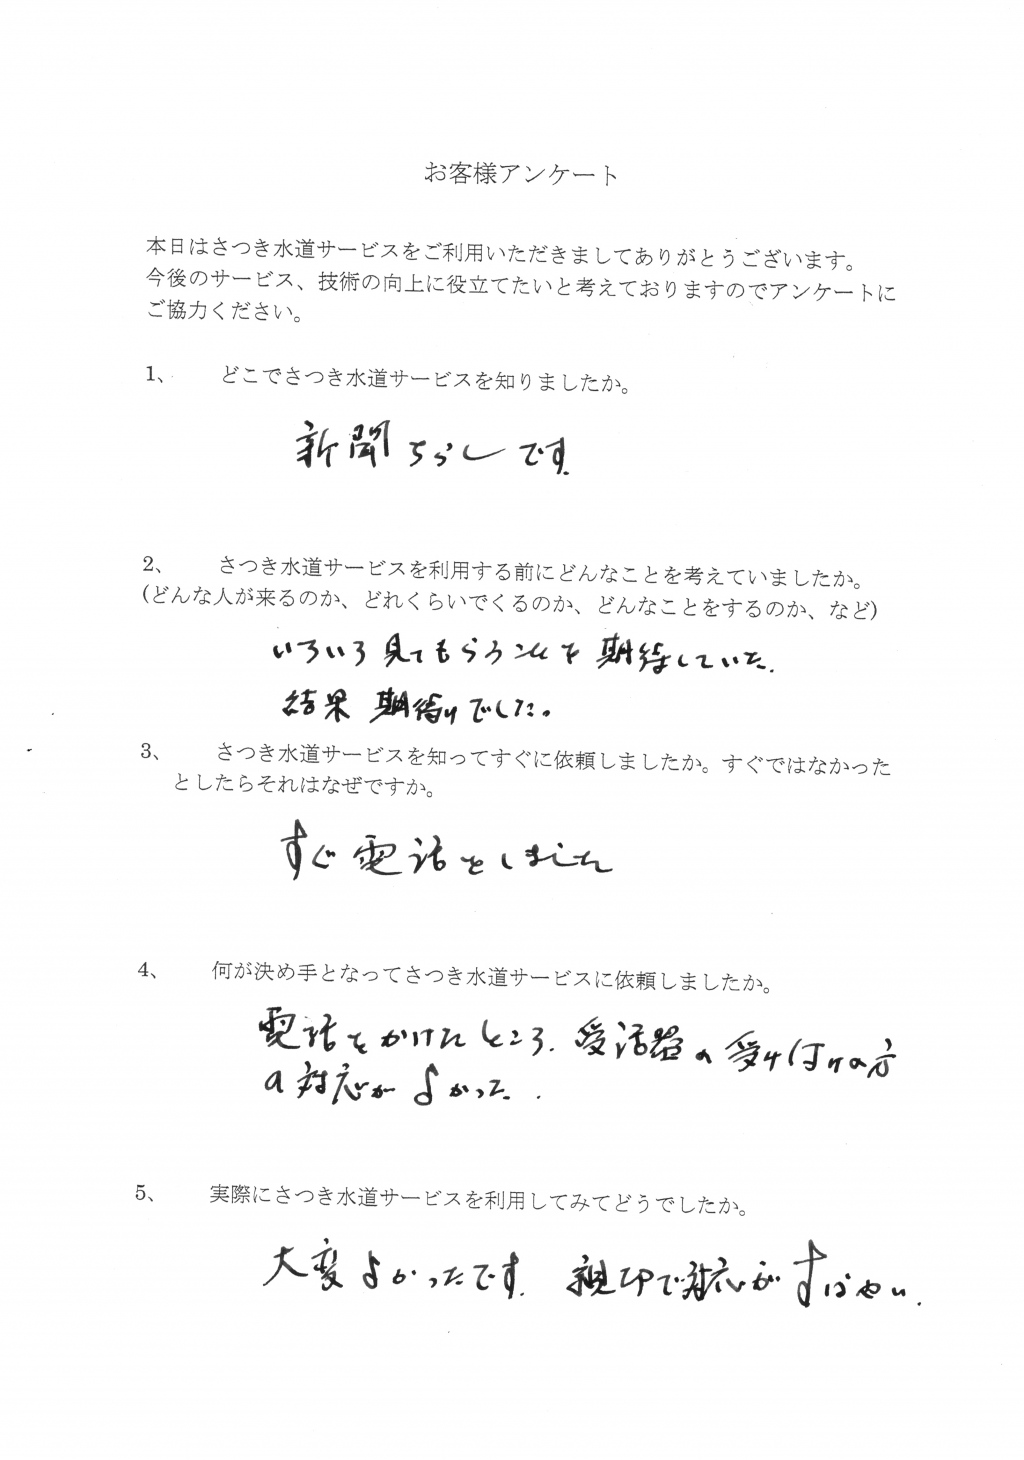 お客様アンケート
本日はさつき水道サービスをご利用いただきましてありがとうございます。
今後のサービス、技術の向上に役立てたいと考えておりますのでアンケートに
ご協力ください。
1、 どこでさつき水道サービスを知りましたか。
新聞ちらしです.
2、 さつき水道サービスを利用する前にどんなことを考えていましたか。
(どんな人が来るのか、どれくらいでくるのか、どんなことをするのか、など)
いろいろ見てもらうことを期待していた.
結果 期待りでした。
3、 さつき水道サービスを知ってすぐに依頼しましたか。すぐではなかった
としたらそれはなぜですか。
すぐ電話をしました
4、 何が決め手となってさつき水道サービスに依頼しましたか。
電話をかけたところ. 受話器の受け付けの方
の対応がよかった.
5、 実際にさつき水道サービスを利用してみてどうでしたか。
大変よかったです. 親切で対応がすばやい.